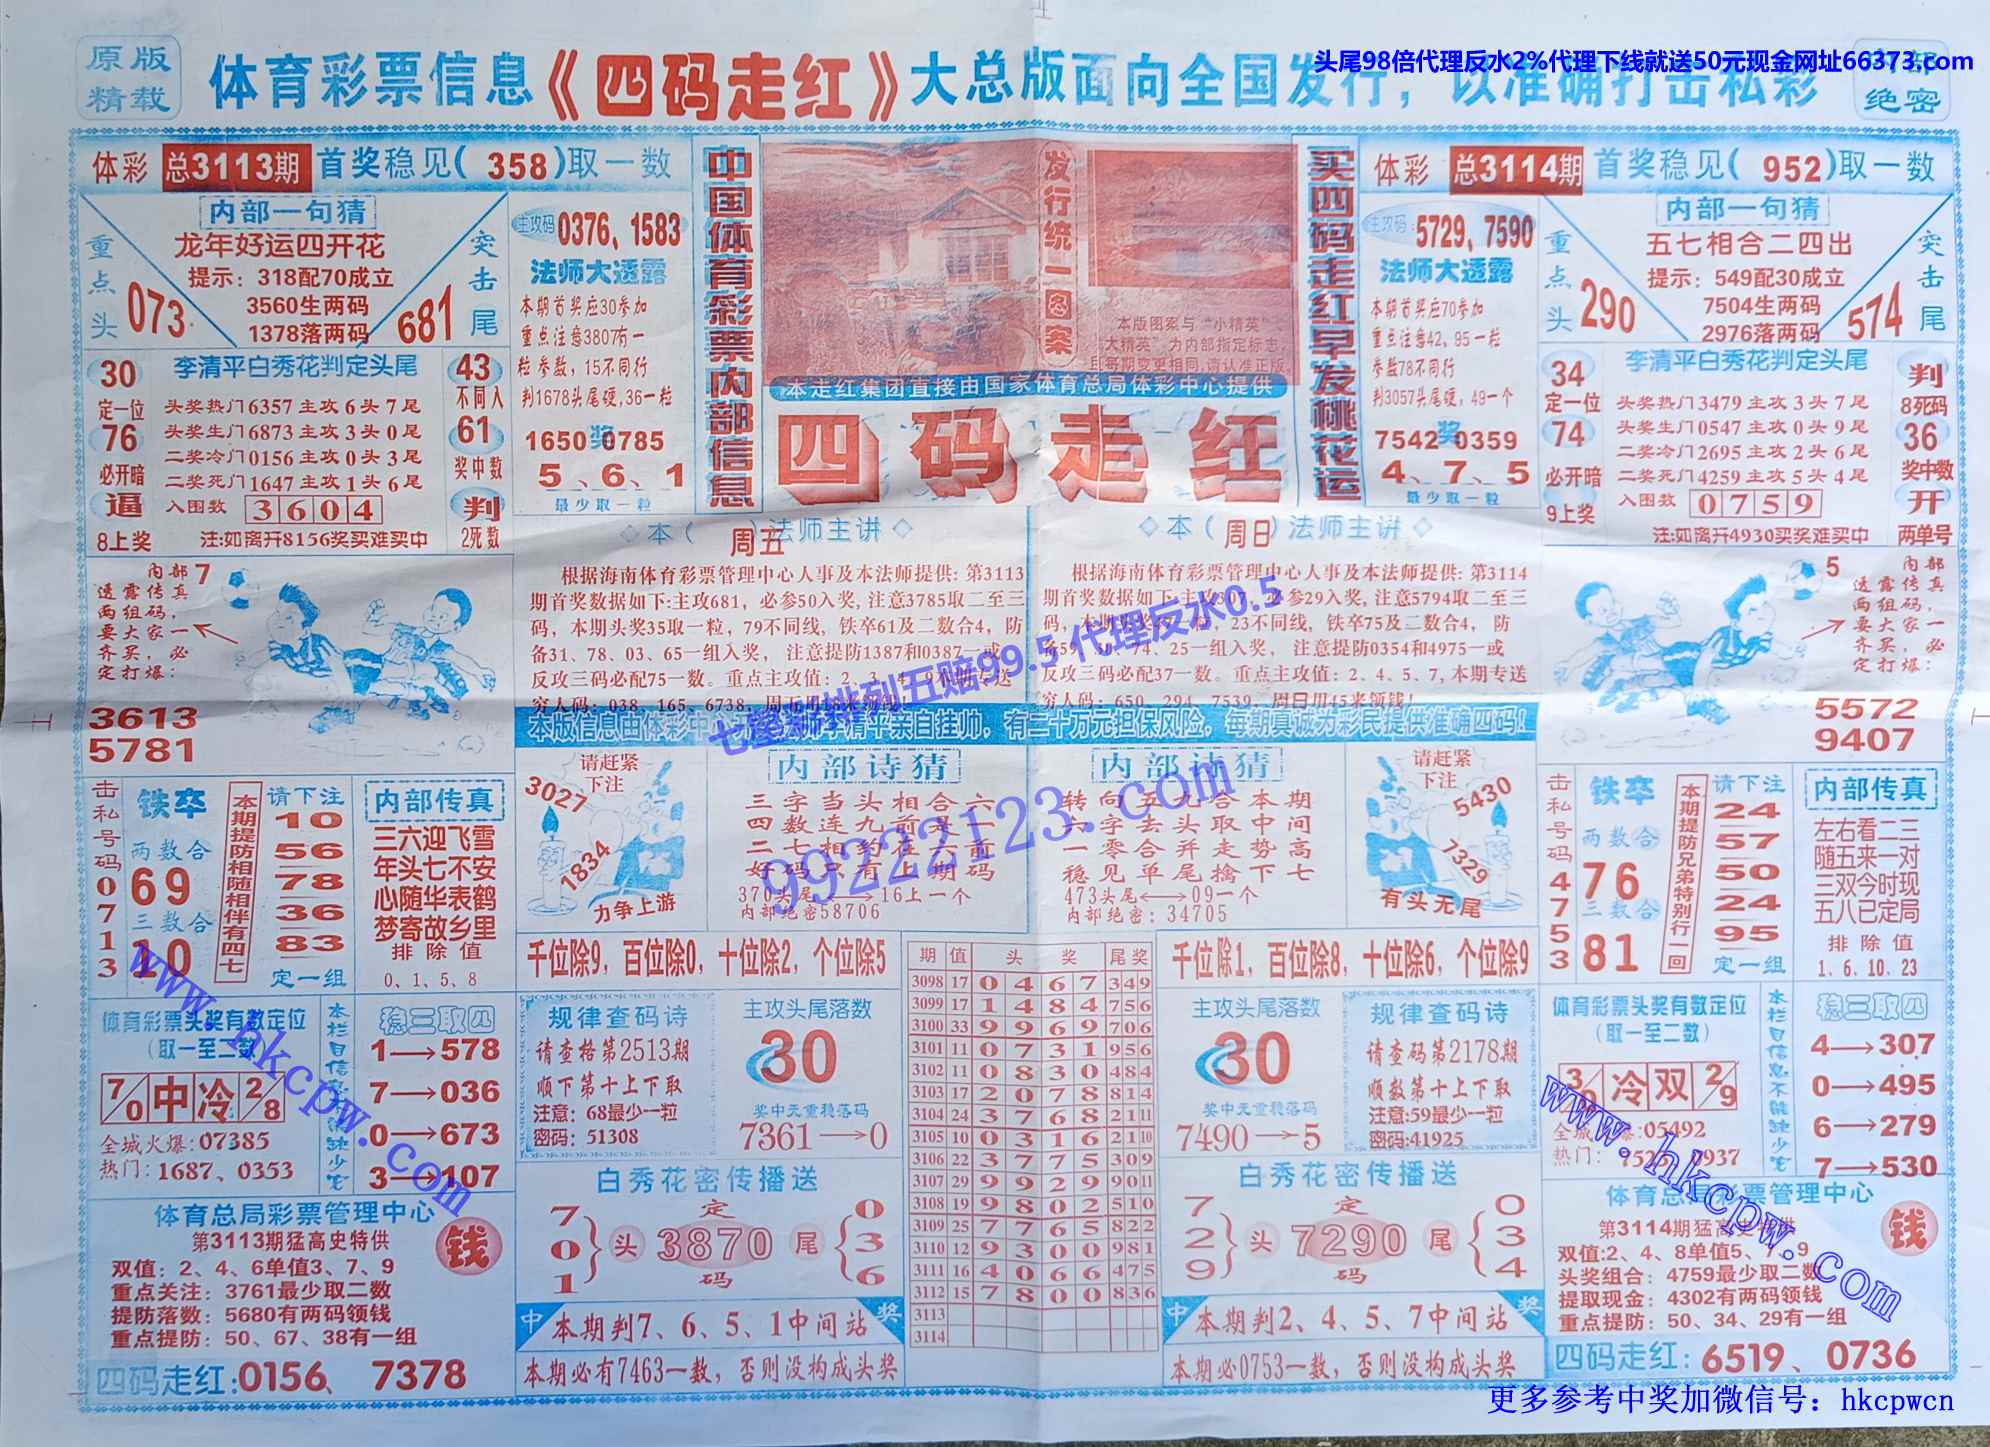 原版
精载
体育彩票信息《四码走红》大总版面向全国发行，以准确打击私彩
头尾98倍代理反水2%代理下线就送50元现金网址66373.com
绝密
体彩 总3113期 首奖稳见(358)取一数
内部一句猜
龙年好运四开花
提示：318配70成立
3560生两码
1378落两码
重点头
073
突击尾
681
主攻码 0376、1583
法师大透露
本期首奖应30参加
重点注意3807有一
粒参数，15不同行
判1678头尾硬,36一粒
1650奖0785
5、6、1
最少取一粒
30
定一位
76
必开暗
逼
8上奖
李清平白秀花判定头尾
头奖热门6357主攻6头7尾
头奖生门6873主攻3头0尾
二奖冷门0156主攻0头3尾
二奖死门1647主攻1头6尾
入围数 3604
注:如离开8156奖买难买中
43
不同入
61
奖中数
判
2死数
中国体育彩票内部信息
发行统一图案
本版图案与“小精英”
大精英”为内部指定标志，
且每期变更相同,请认准正版，
本走红集团直接由国家体育总局体彩中心提供
四码走红
买四码走红早发桃花运
体彩 总3114期 首奖稳见(952)取一数
主攻码：5729,7590
法师大透露
本期首奖应70参加
重点注意42、95一粒
参数78不同行
判3057头尾硬，49一个
7542奖0359
4、7、5
最少取一粒
内部一句猜
五七相合二四出
提示：549配30成立
7504生两码
2976落两码
重点头
290
突击尾
574
34
定一位
74
必开暗
9上奖
李清平白秀花判定头尾
头奖热门3479主攻3头7尾
头奖生门0547主攻0头9尾
二奖冷门2695主攻2头6尾
二奖死门4259主攻5头4尾
入围数 0759
注:如离开4930买奖难买中
判
8死码
36
奖中数
开
两单号
内部
透露传真
两组码，
要大家一
齐买，必
定打爆：
7
3613
5781
本(周五)法师主讲
根据海南体育彩票管理中心人事及本法师提供: 第3113
期首奖数据如下:主攻681，必参50入奖,注意3785取二至三
码，本期头奖35取一粒，79不同线，铁卒61及二数合4，防
备31、78、03、65一组入奖，注意提防1387和0387一或
反攻三码必配75一数。重点主攻值：2、3、4、9本期专送
穷人码：038、165、6738，周五用18来领钱
本(周日)法师主讲
根据海南体育彩票管理中心人事及本法师提供: 第3114
期首奖数据如下:主攻307，必参29入奖,注意5794取二至三
23不同线，铁卒75及二数合4，防
74、25一组入奖，注意提防0354和4975一或
反攻三码必配37一数。重点主攻值：2、4、5、7,本期专送
穷人码：650、294、7539，周日用45来领钱！
七星彩排列五赔99.5代理反水0.5
99222123.com
内部
透露传真
两组码，
要大家一
齐买，必
定打爆：
5
5572
9407
本版信息由体彩中心 李清平亲自挂帅，有二十万元担保风险，每期真诚为彩民提供准确四码！
击私号码0713
铁卒
两数合
69
三数合
10
本期提防相随相伴有四七
请下注
10
56
78
36
83
定一组
内部传真
三六迎飞雪
年头七不安
心随华表鹤
梦寄故乡里
排除值
0、1、5、8
请赶紧
下注
3027
1834
力争上游
内部诗猜
三字当头相合六
四数连九前是一
二七相约在六前
好码只有上期码
370头尾⟷16上一个
内部绝密58706
内部诗猜
转向五九合本期
一字去头取中间
一零合并走势高
稳见单尾擒下七
473头尾⟷09一个
内部绝密：34705
请赶紧
下注
5430
7329
有头无尾
击私号码4753
铁卒
两数合
76
三数合
81
本期提防兄弟特别行一回
请下注
24
57
50
24
95
定一组
内部传真
左右看二三
随五来一对
三双今时现
五八已定局
排除值
1、6、10、23
千位除9，百位除0，十位除2，个位除5
千位除1，百位除8，十位除6，个位除9
期 值 头奖 尾奖
3098 17 0 4 6 7 3 4 9
3099 17 1 4 8 4 7 5 6
3100 33 9 9 6 9 7 0 6
3101 11 0 7 3 1 9 5 6
3102 11 0 8 3 0 4 8 4
3103 17 2 0 7 8 8 1 4
3104 24 3 7 6 8 2 1 11
3105 10 0 3 1 6 2 1 10
3106 22 3 7 7 5 3 0 9
3107 29 9 9 2 9 9 0 11
3108 19 9 8 0 2 5 1 0
3109 25 7 7 6 5 8 2 2
3110 12 9 3 0 0 9 8 1
3111 16 4 0 6 6 4 7 5
3112 15 7 8 0 0 8 3 6
3113
3114
体育彩票头奖有数定位
（取一至二数）
7/0 中 冷 2/8
全城火爆:07385
热门：1687、0353
稳三取四
1→578
7→036
0→673
3→107
规律查码诗
请查格第2513期
顺下第十上下取
注意：68最少一粒
密码：51308
主攻头尾落数
30
奖中无重稳落码
7361→0
主攻头尾落数
30
奖中无重稳落码
7490→5
规律查码诗
请查码第2178期
顺数第十上下取
注意:59最少一粒
密码:41925
体育彩票头奖有数定位
（取一至二数）
冷 双 2/9
05492
热门：
本栏目信息不能缺少它
稳三取四
4→307
0→495
6→279
7→530
白秀花密传播送
7 0 1
头 定 3870 码 尾
0 3 6
白秀花密传播送
7 2 9
头 定 7290 码 尾
0 3 4
体育总局彩票管理中心
第3113期猛高史特供
双值：2、4、6单值3、7、9
重点关注：3761最少取二数
提防落数：5680有两码领钱
重点提防：50、67、38有一组
钱
四码走红:0156、7378
中 本期判7、6、5、1中间站 奖
本期必有7463一数，否则没构成头奖
中 本期判2、4、5、7中间站 奖
本期必0753一数，否则没构成头奖
第3114期猛高史特供
双值:2、4、8单值5、7、9
头奖组合：4759最少取二数
提取现金：4302有两码领钱
重点提防：50、34、29有一组
钱
四码走红: 6519、0736
www.hkcpw.com
www.hkcpw.com
更多参考中奖加微信号：hkcpwcn